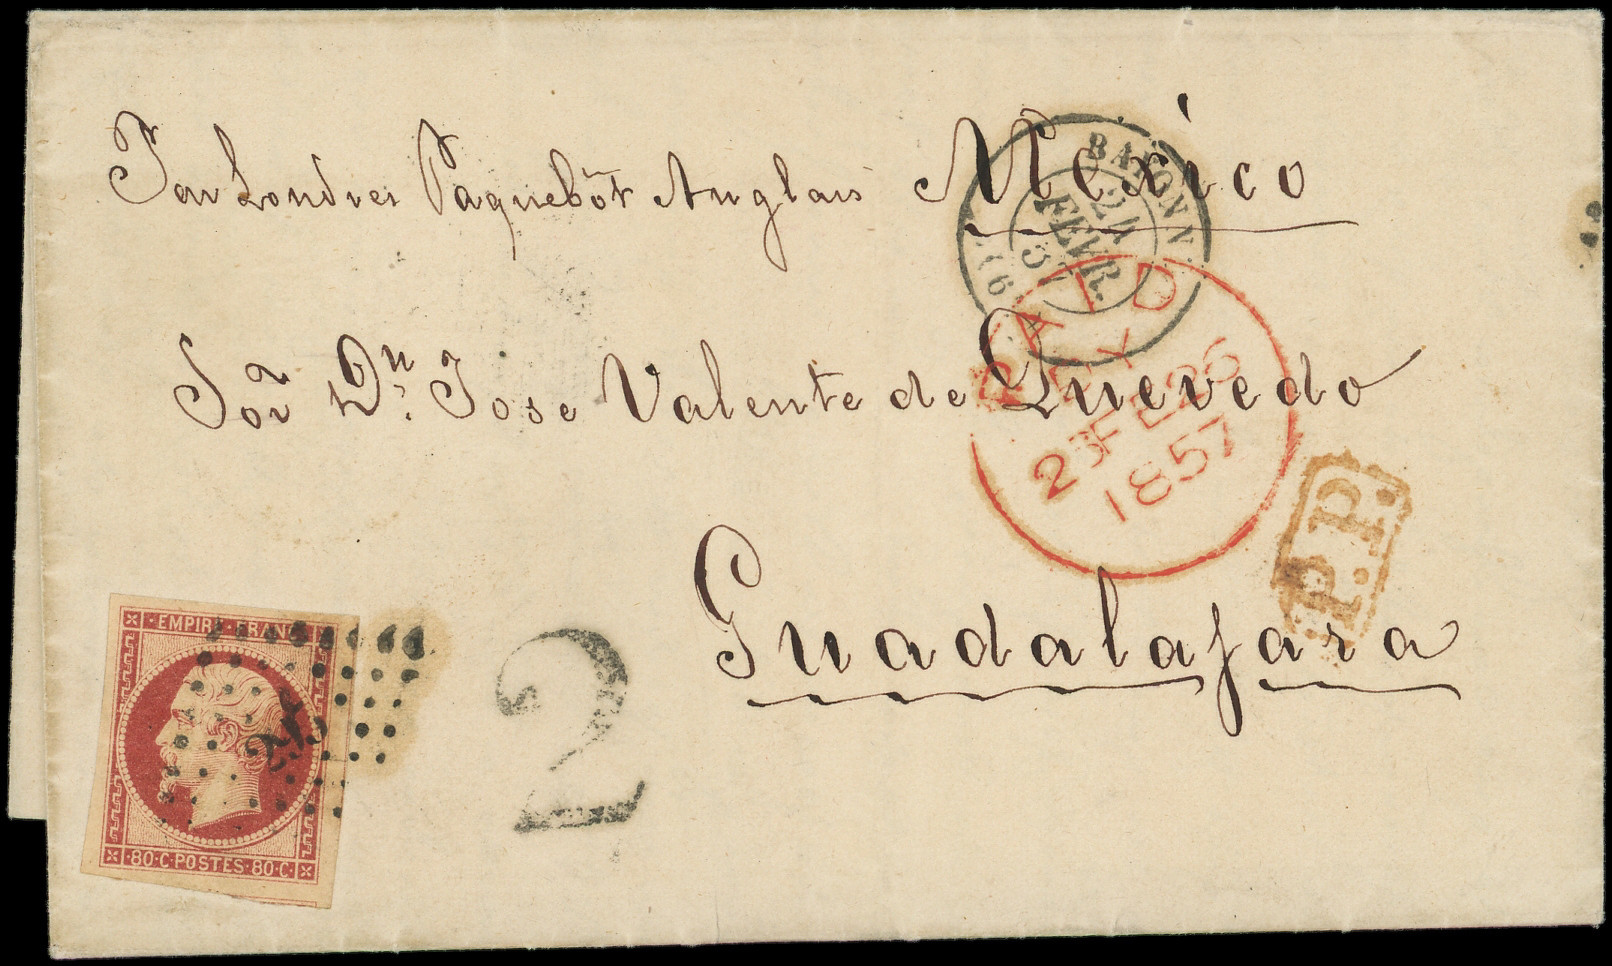 Par Londres Paquebôt Anglais Mexico
BAYONN
24
FEVR.
57
PAID
2B FE 26
1857
Sor Dn. Jose Valente de Quevedo
P.P.
Guadalajara
EMPIRE FRANC
80·C·POSTES·80·C·
2